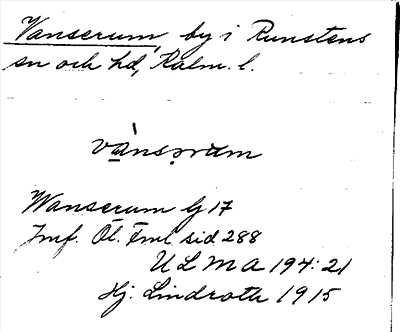 Vanserum, by i Runstens
sn och hd, Kalm. l.
vànsərum
Wanserum G 17
Jmf. Öl. Fml sid 288
ULMA 194:21
Hj. Lindroth 1915